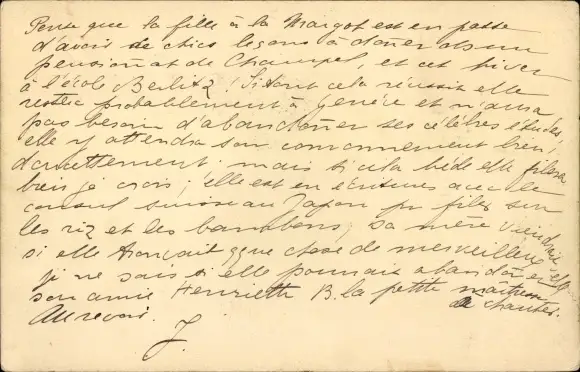 Pense que la fille à la Margot est en passe
d'avoir de chics leçons à donner dans un
pensionat de Champel, et cet hiver
à l'école Berlitz! Si tout cela réussit elle
restera probablement à genève et n'aura
pas besoin d'abandonner ses célèbres études,
elle y attendra son couronnement bien
doucettement. mais si cela cède elle filera
bien je crois; elle est en écritures avec le
consul suisse au Japon pr filer sur
les riz et les bambous, sa mère viendrait
si elle trouvait qque chose de merveilleux
je ne sais si elle pourrait abandonner
son amie Henriette B. la petite maîtresse
de chant.
Au revoir.
J.